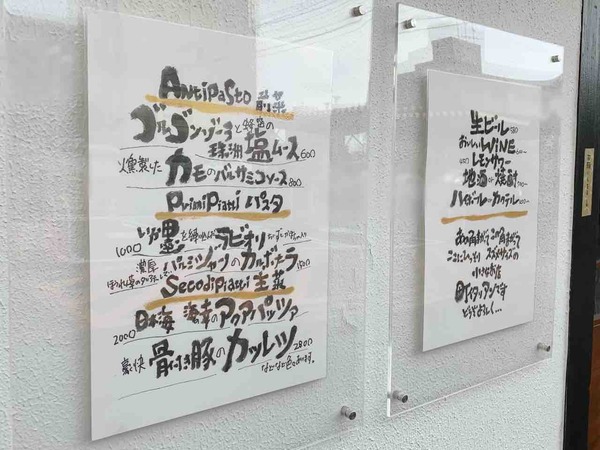 Antipasto 前菜
ゴルゴンゾーラと蜂蜜の
珠洲塩ムース 600
燻製した カモのバルサミコソース 800
PrimiPiatti パスタ
1000 いか墨を練り込んだラビオリ
濃厚 パルミジャーノのカルボナーラ
SecodiPiatti 主菜
2000 日本海 海幸のアクアパッツァ
豪快 骨付き豚のカツレツ 2800
などなど色々あります。
生ビール
おいしいWINE
レモンサワー
地酒 or 焼酎
ハイボール カクテル
あの角まがって この角まがって
ここにひっそり スズメサイズの
小さなお店
町イタリアンです
どうぞよろしく…